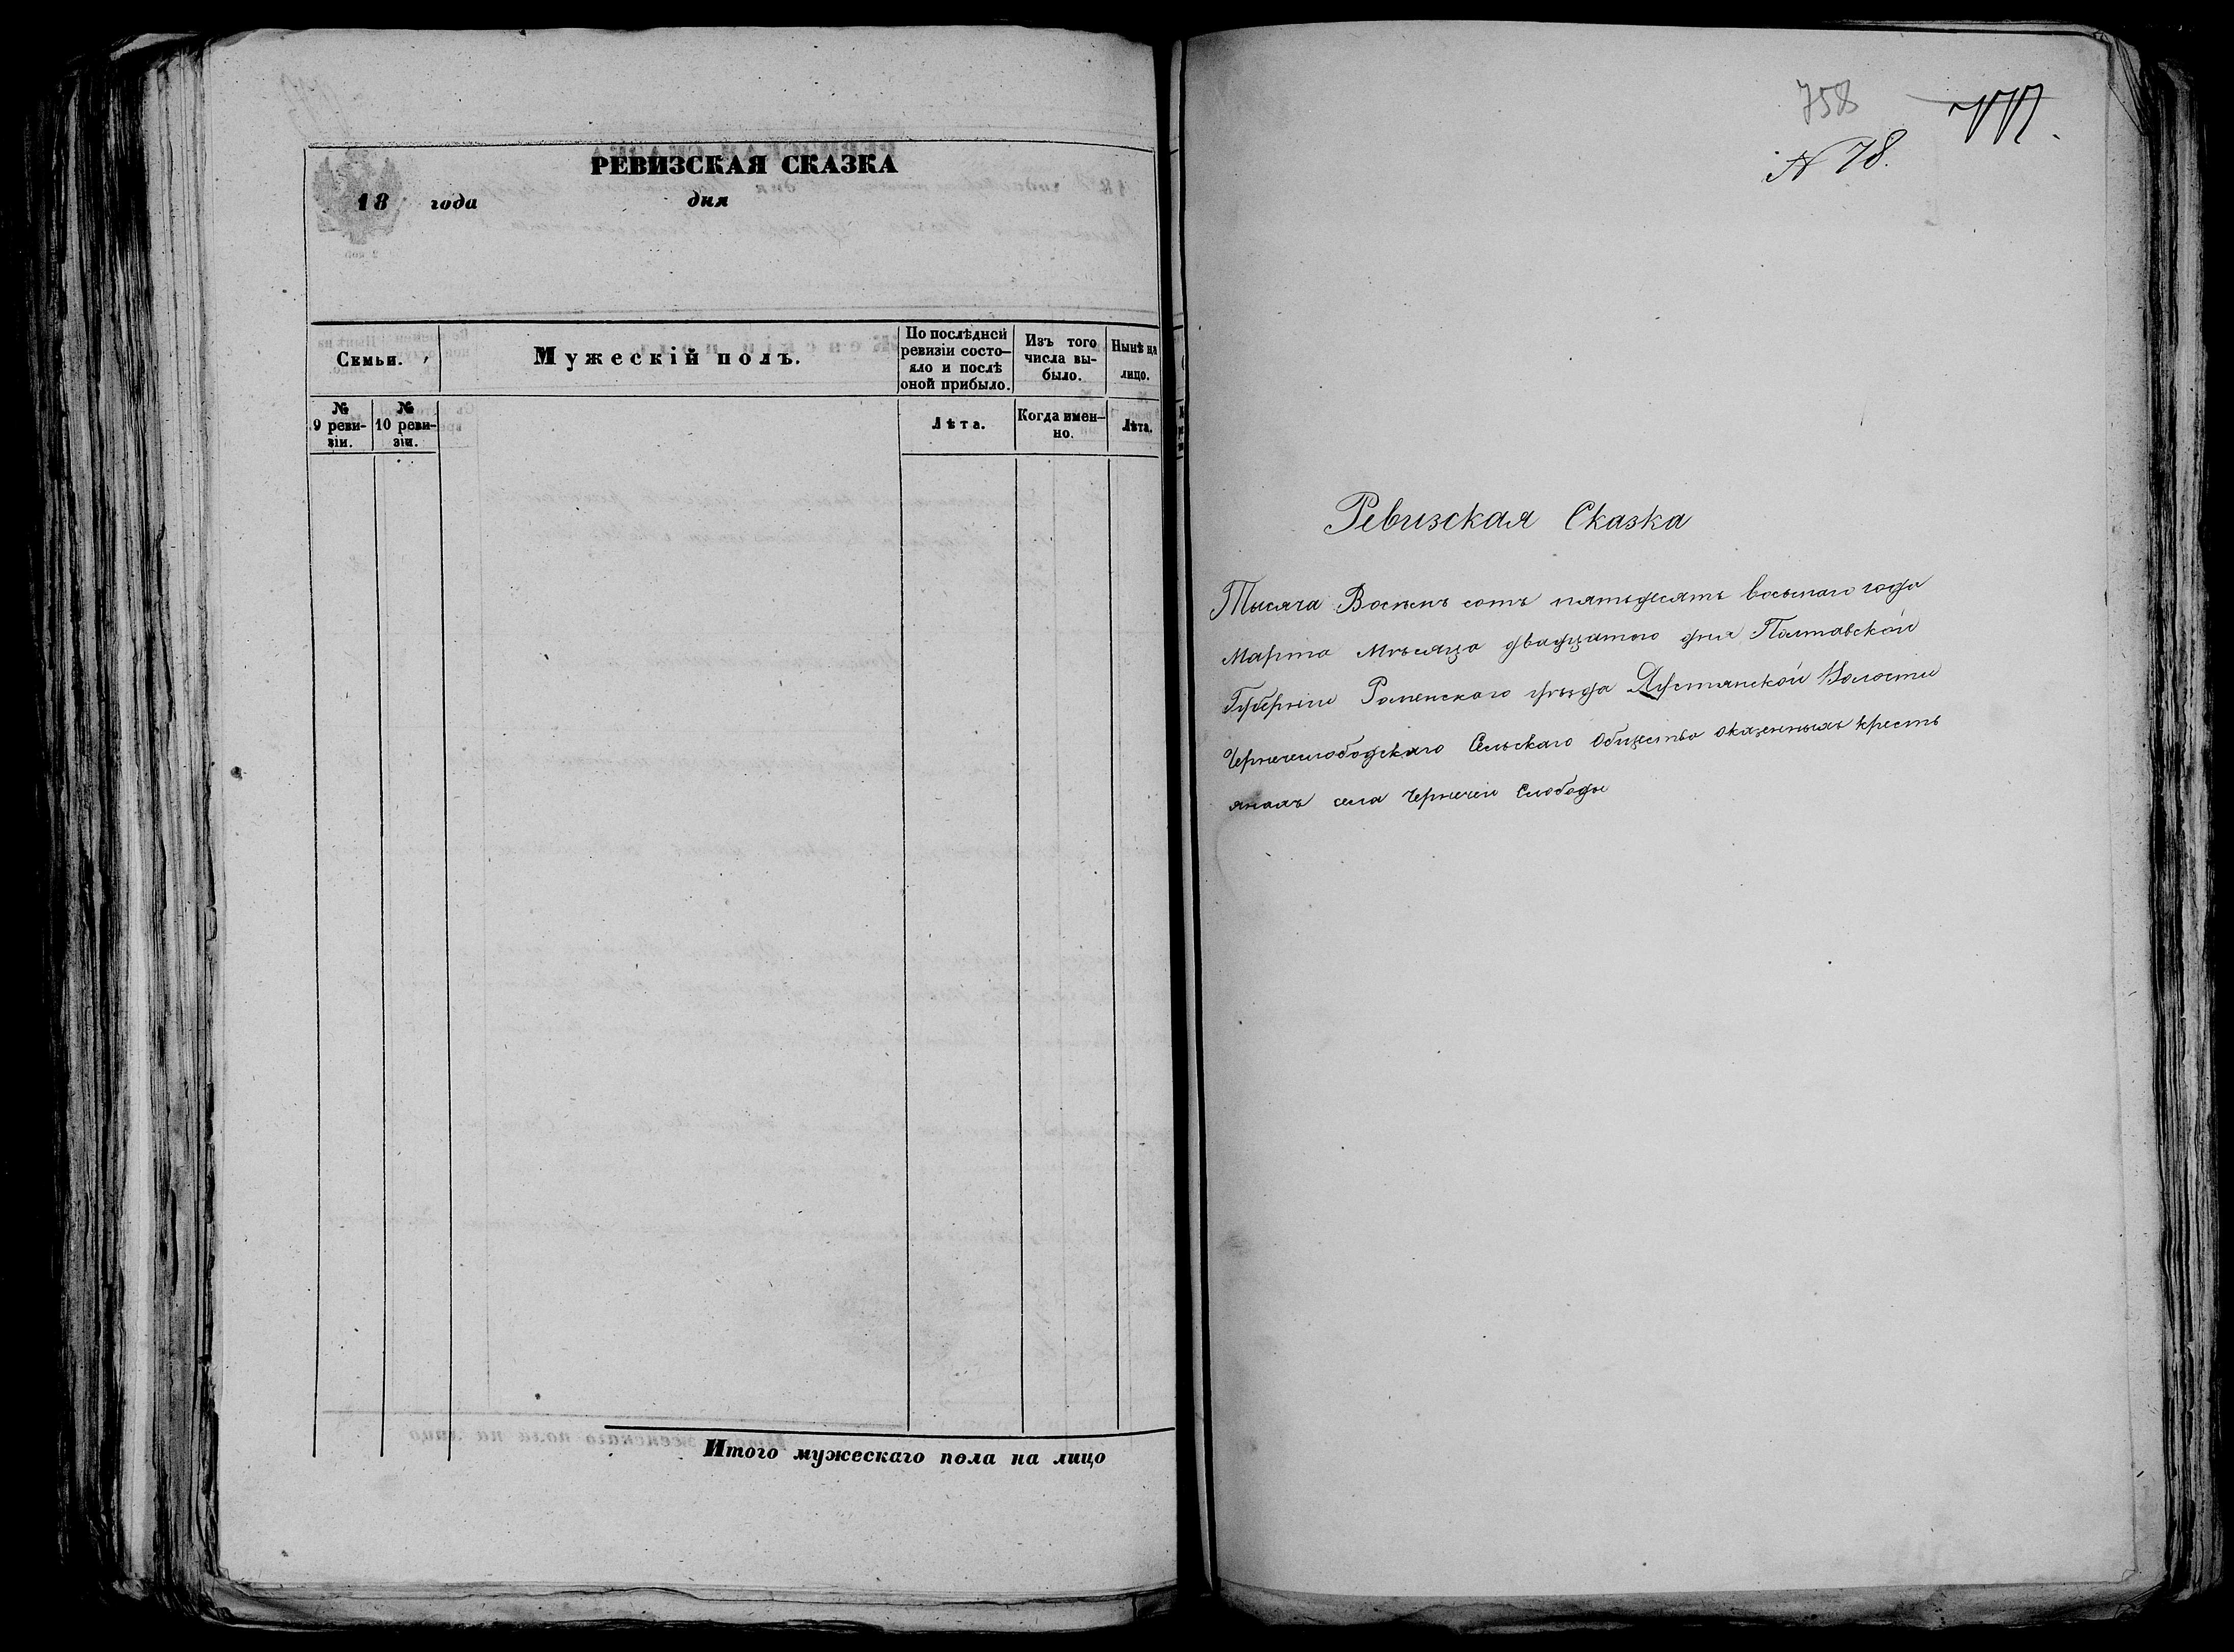 РЕВИЗСКАЯ СКАЗКА
18 года дня
Семьи.
Мужескій полъ.
По послѣдней ревизіи состояло и послѣ оной прибыло.
Изъ того числа выбыло.
Нынѣ на лицо.
№ 9 ревизіи.
№ 10 ревизіи.
Лѣта.
Когда именно.
Лѣта.
Итого мужескаго пола на лицо
758
№ 78.
Ревизская Сказка
Тысяча Восемь сотъ пятьдесятъ восьмаго года
Марта Мѣсяца двадцатого дня Полтавской
Губерніи Роменского уѣзда Волости
Чернечеслободскаго Сельскаго Общества оказенныхъ кресть
янахъ села Чернечей Слободы